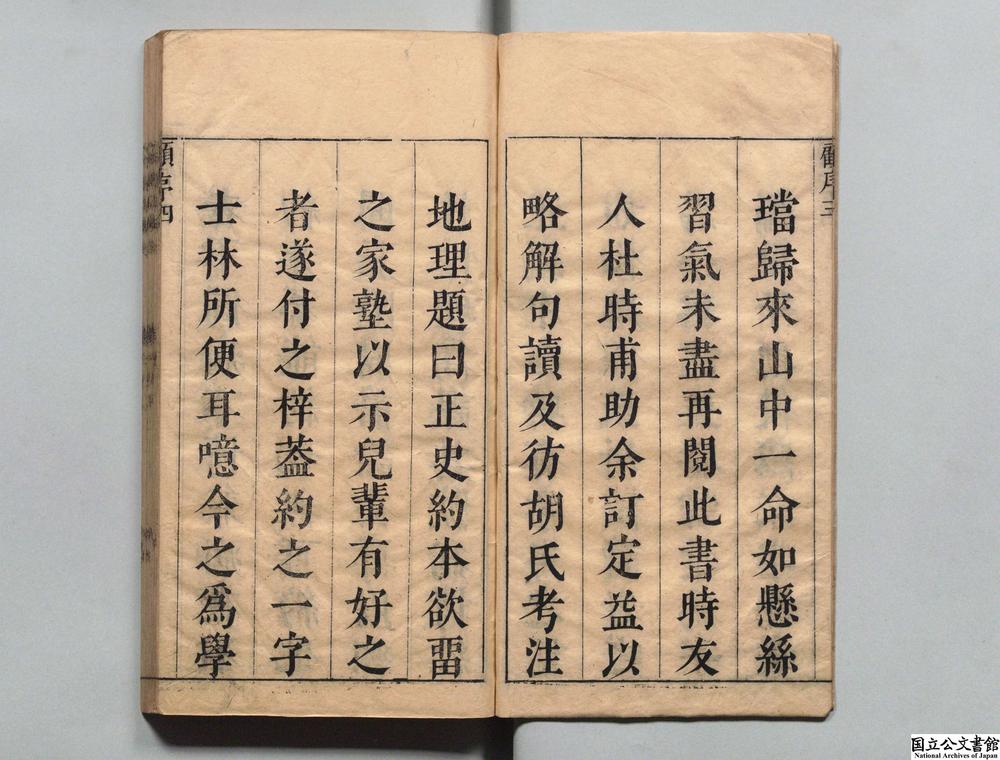 顧序三
璫歸來山中一命如懸絲
習氣未盡再閱此書時友
人杜時甫助余訂定益以
略解句讀及彷胡氏考注
地理題曰正史約本欲畱
之家塾以示兒輩有好之
者遂付之梓葢約之一字
士林所便耳噫今之爲學
顧序四
国立公文書館
National Archives of Japan